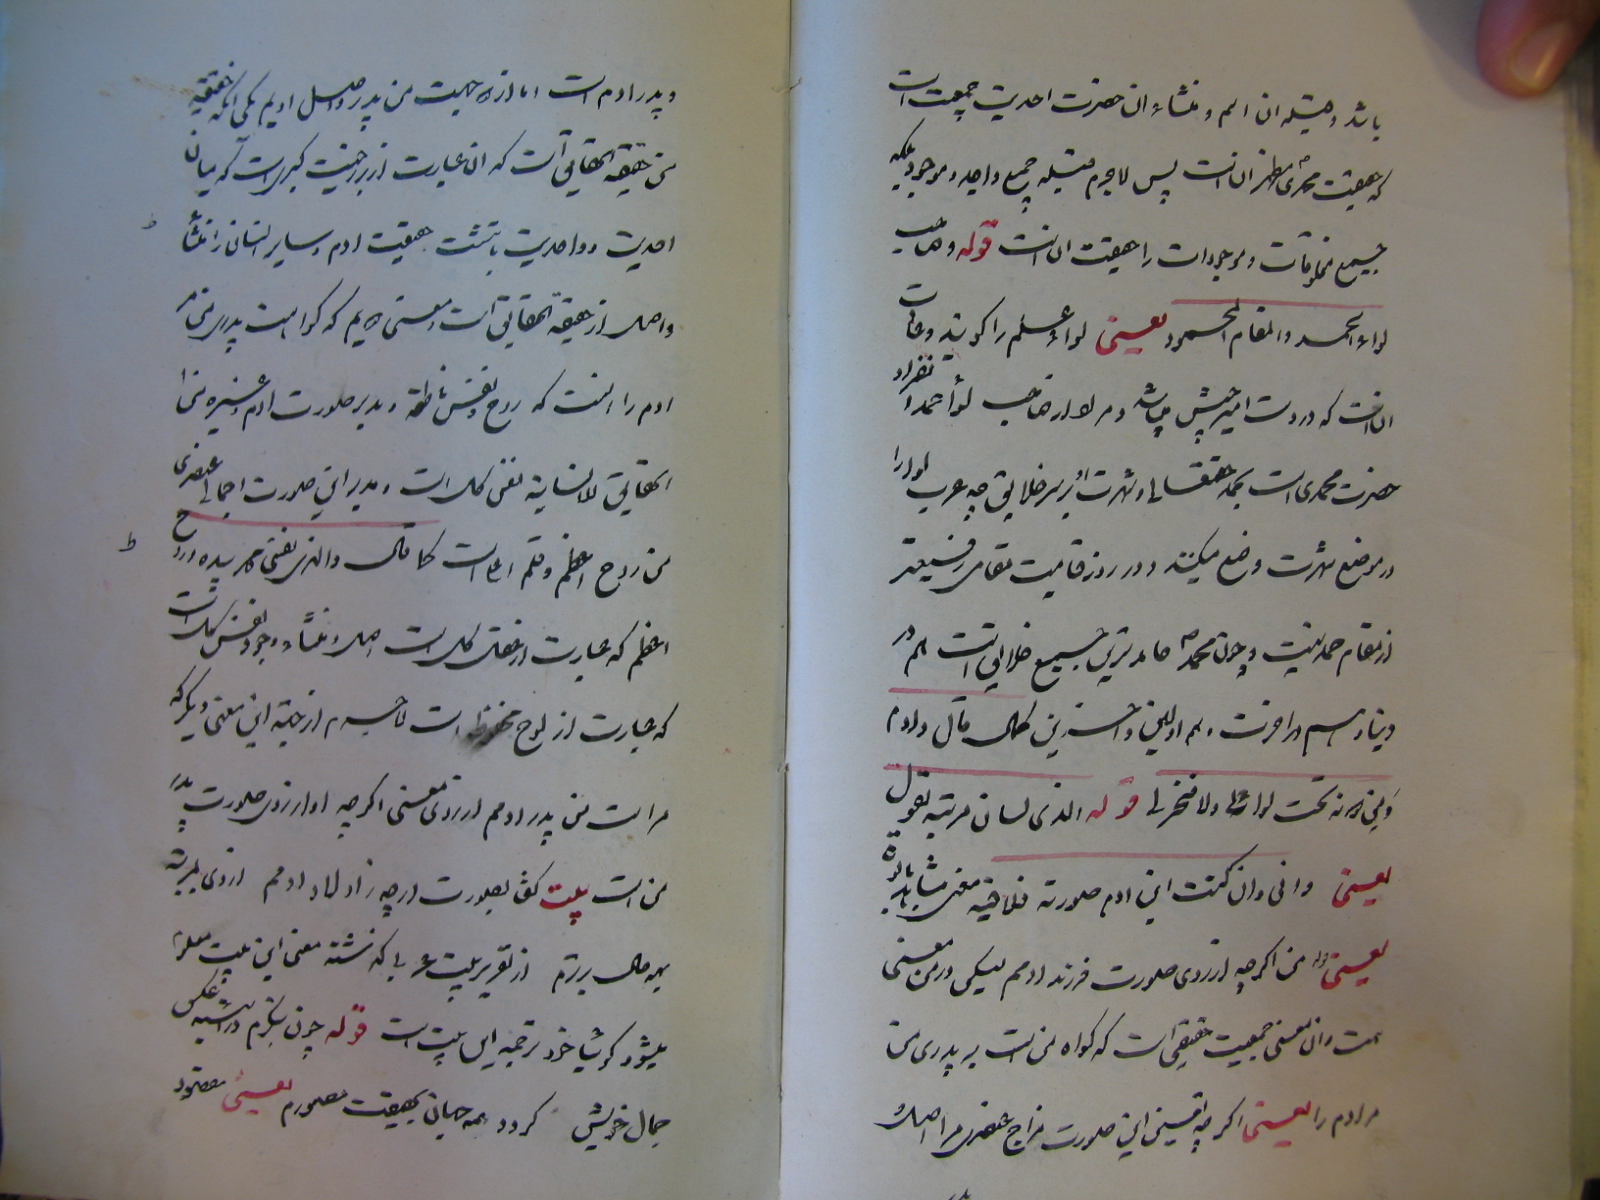 باشد و قبله ان اسم و منشاء ان حضرت احدیت جمعیت است
که حقیقت محمدی مظهر ان است پس لاجرم قبله جمیع واحد و موجود بلکه
جمیع مخلوقات و موجودات را حقیقت ان است قوله وصاحب
لواء الحمد والمقام المحمود یعنی لواء علم را کویند و عادت
ان است که در دست امیر جیش میباشد و مراد از صاحب لواء حمد
حضرت محمدی است بحمد حقتعالی و شهرت او بر سر خلایق چه عرب لوا را
در موضع شهرت وضع میکنند و در روز قیامت مقامی رفیعتر
از مقام حمد نیست و چون محمد حامدترین جمیع خلایق است هم در
دنیا و هم در اخرت و هم اولین و اخرین کما قال و ادم
ومن دونه تحت لوائی ولا فخر لی قوله الذی لسان مرتبته یقول
یعنی وانی وان کنت ابن ادم صورته فلی فیه معنی شاهد بابوتی
یعنی من اکرچه از روی صورت فرزند ادمم لیکن در من معنی
هست و ان معنی جمعیت حقیقی است که کواه من است به پدری من
مر ادم را یعنی اکرچه تعین این صورت مزاج عنصری مرا اصل
و پدر ادم است اما از ده جهت من پدر و اصل اویم یکی انکه حقیقة
من حقیقة الحقایق است که ان عبارت از برزخیت کبری است که میان
احدیت و واحدیت باشد حقیقت ادم و سایر انسان را منشأ
و اصل از حقیقة الحقایق است
ادم را انست که روح و نفس ناطقه و مدبر صورت ادم و غیره من
الحقایق الانسانیة نفس کل است و مدبر این صورت اجمالی عنصری
من روح اعظم و قلم اعلی است کما قال والذی نفس محمد بیده و روح
اعظم که عبارت از عقل کل است اصل و منشاء وجود نفس کل است
که عبارت از لوح محفوظ است لاجرم از حیثیة این معنی دیکر که
مراست من پدر ادمم از روی معنی اکرچه او از روی صورت پدر
من است بیت کفتا بصورت ارچه ز اولاد ادمم از روی مرتبة
بهمه حال برترم از تقریر بیت عربی که کذشته معنی این بیت معلوم
میشود کوئیا خود ترجمه این بیت است قوله چون بنکرم در اینه عکس
جمال خویش کردد همه جهان بحقیقت مصورم یعنی مقصود